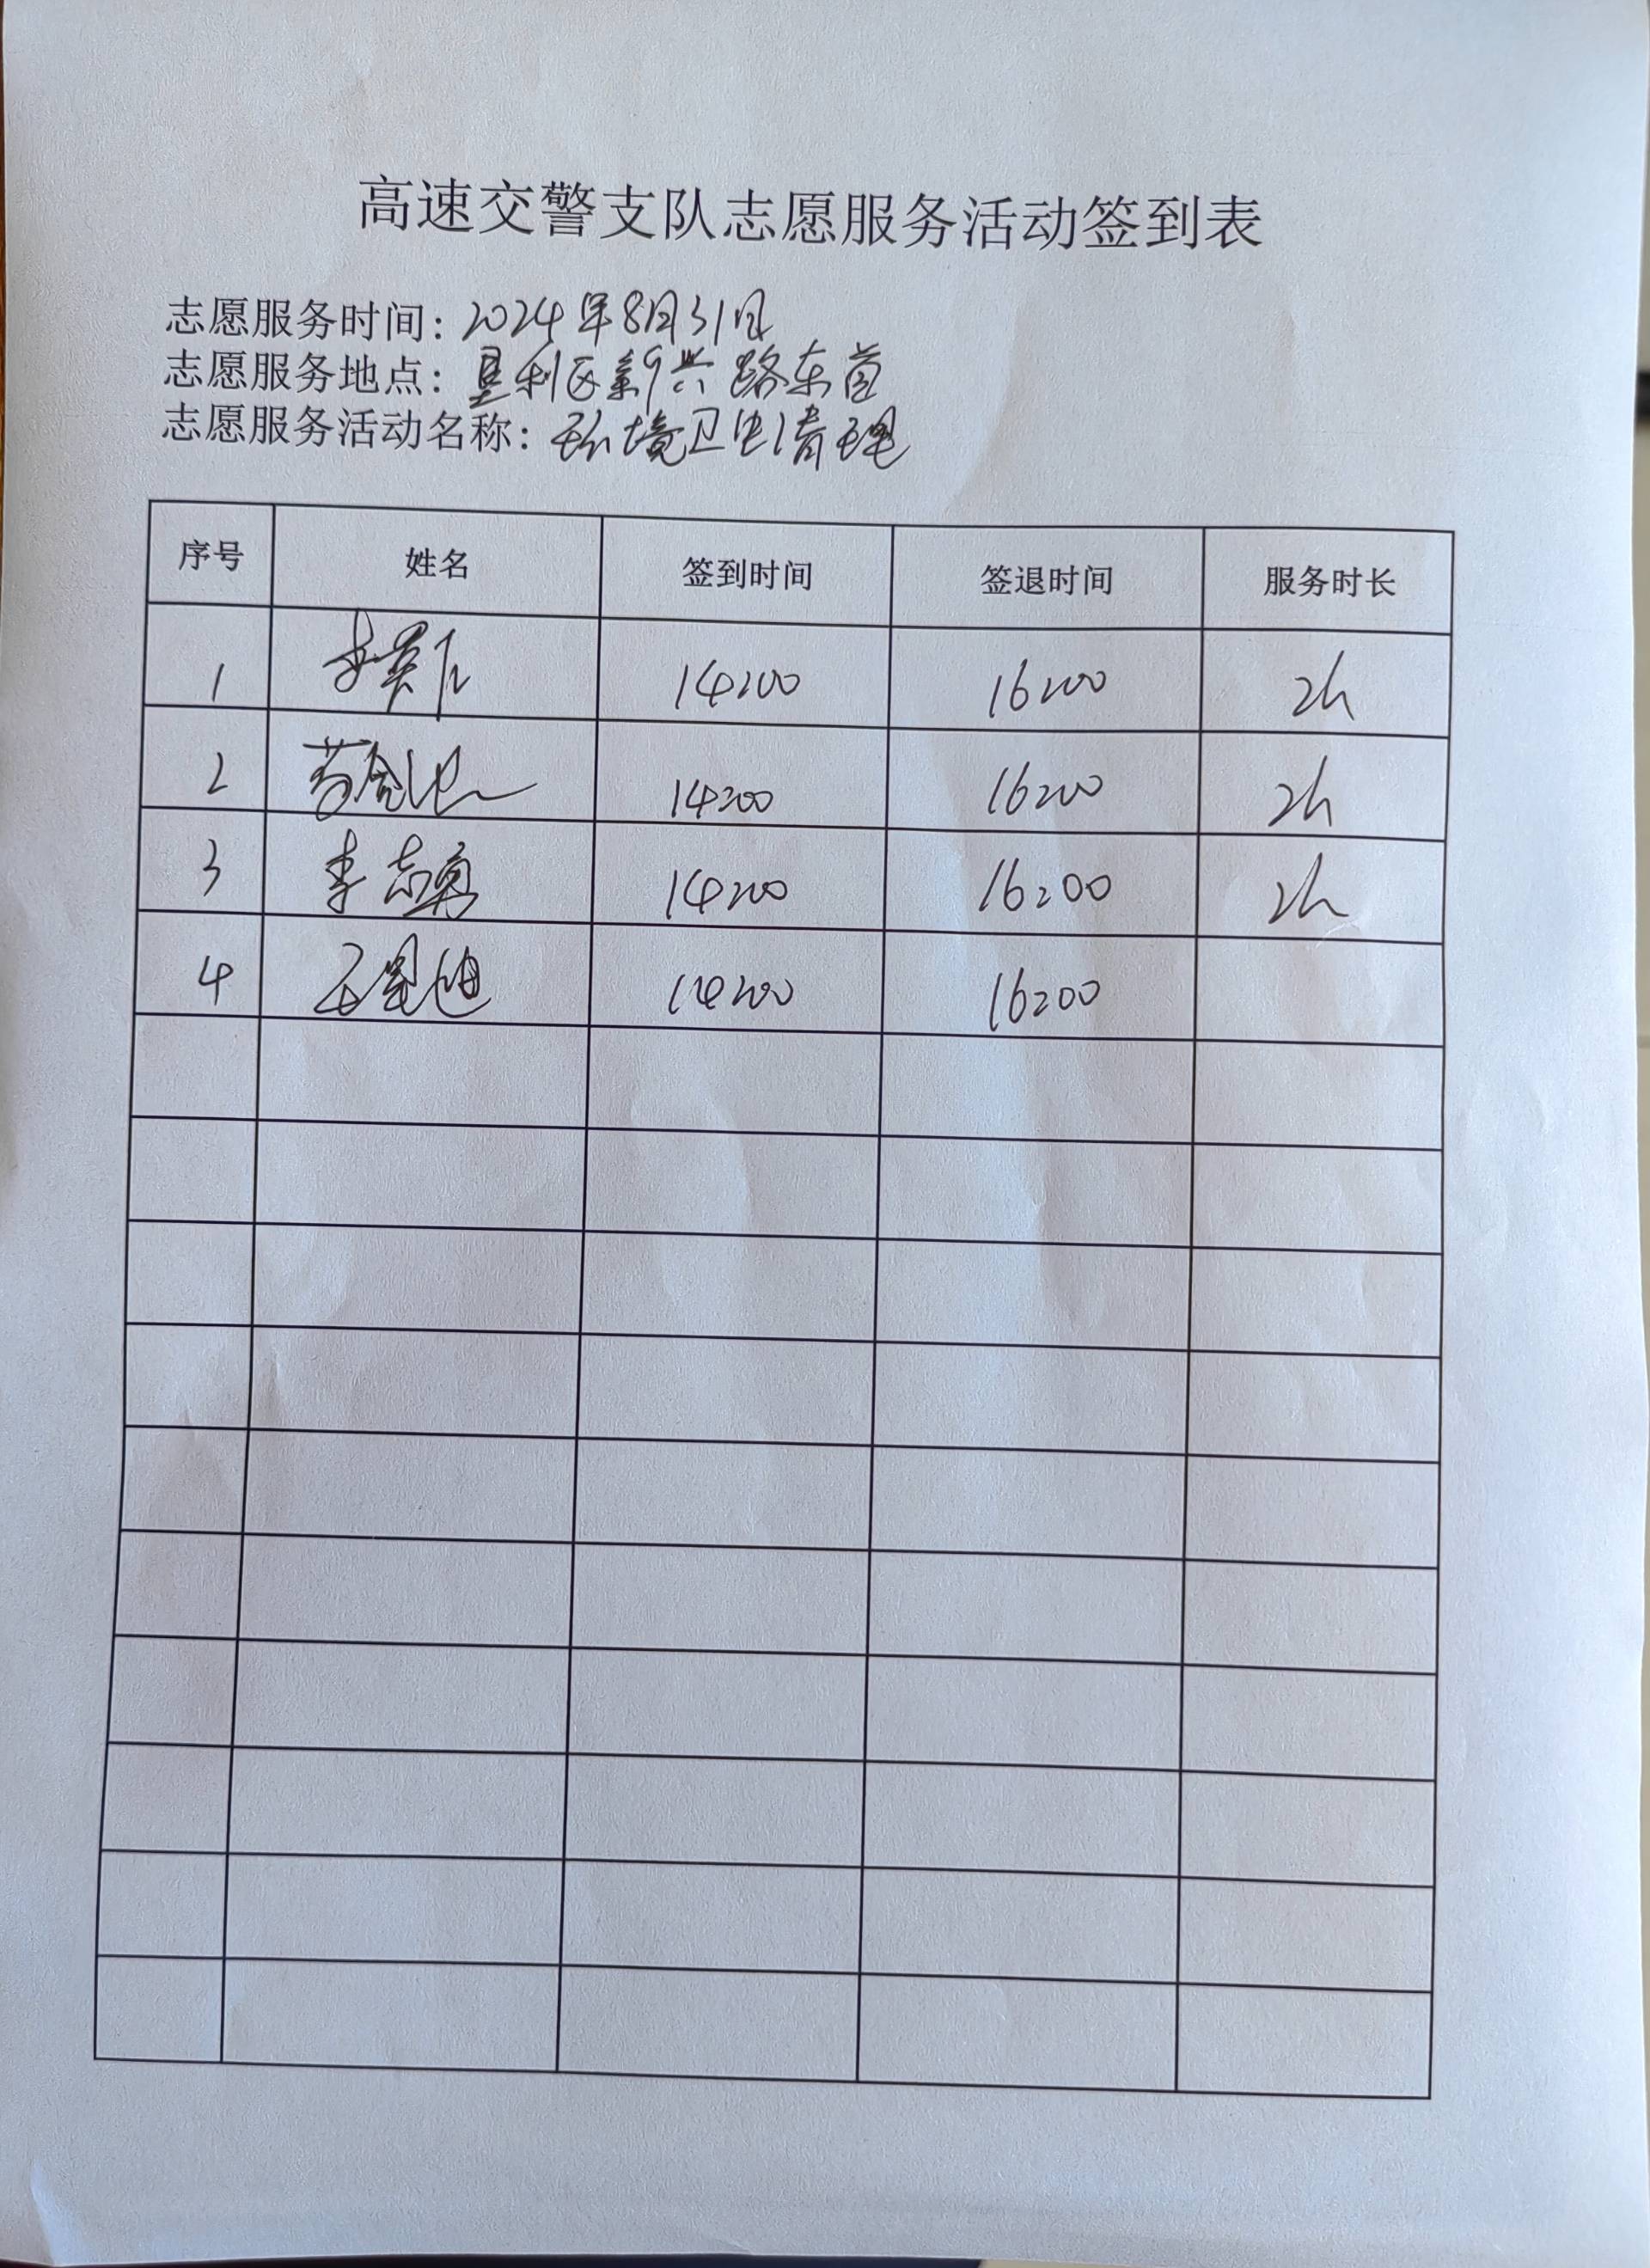 高速交警支队志愿服务活动签到表
志愿服务时间：2024年8月31日
志愿服务地点：垦利区新兴路东首
志愿服务活动名称：环境卫生清理
序号 姓名 签到时间 签退时间 服务时长
1 14:00 16:00 2h
2 14:00 16:00 2h
3 李志勇 14:00 16:00 2h
4 14:00 16:00